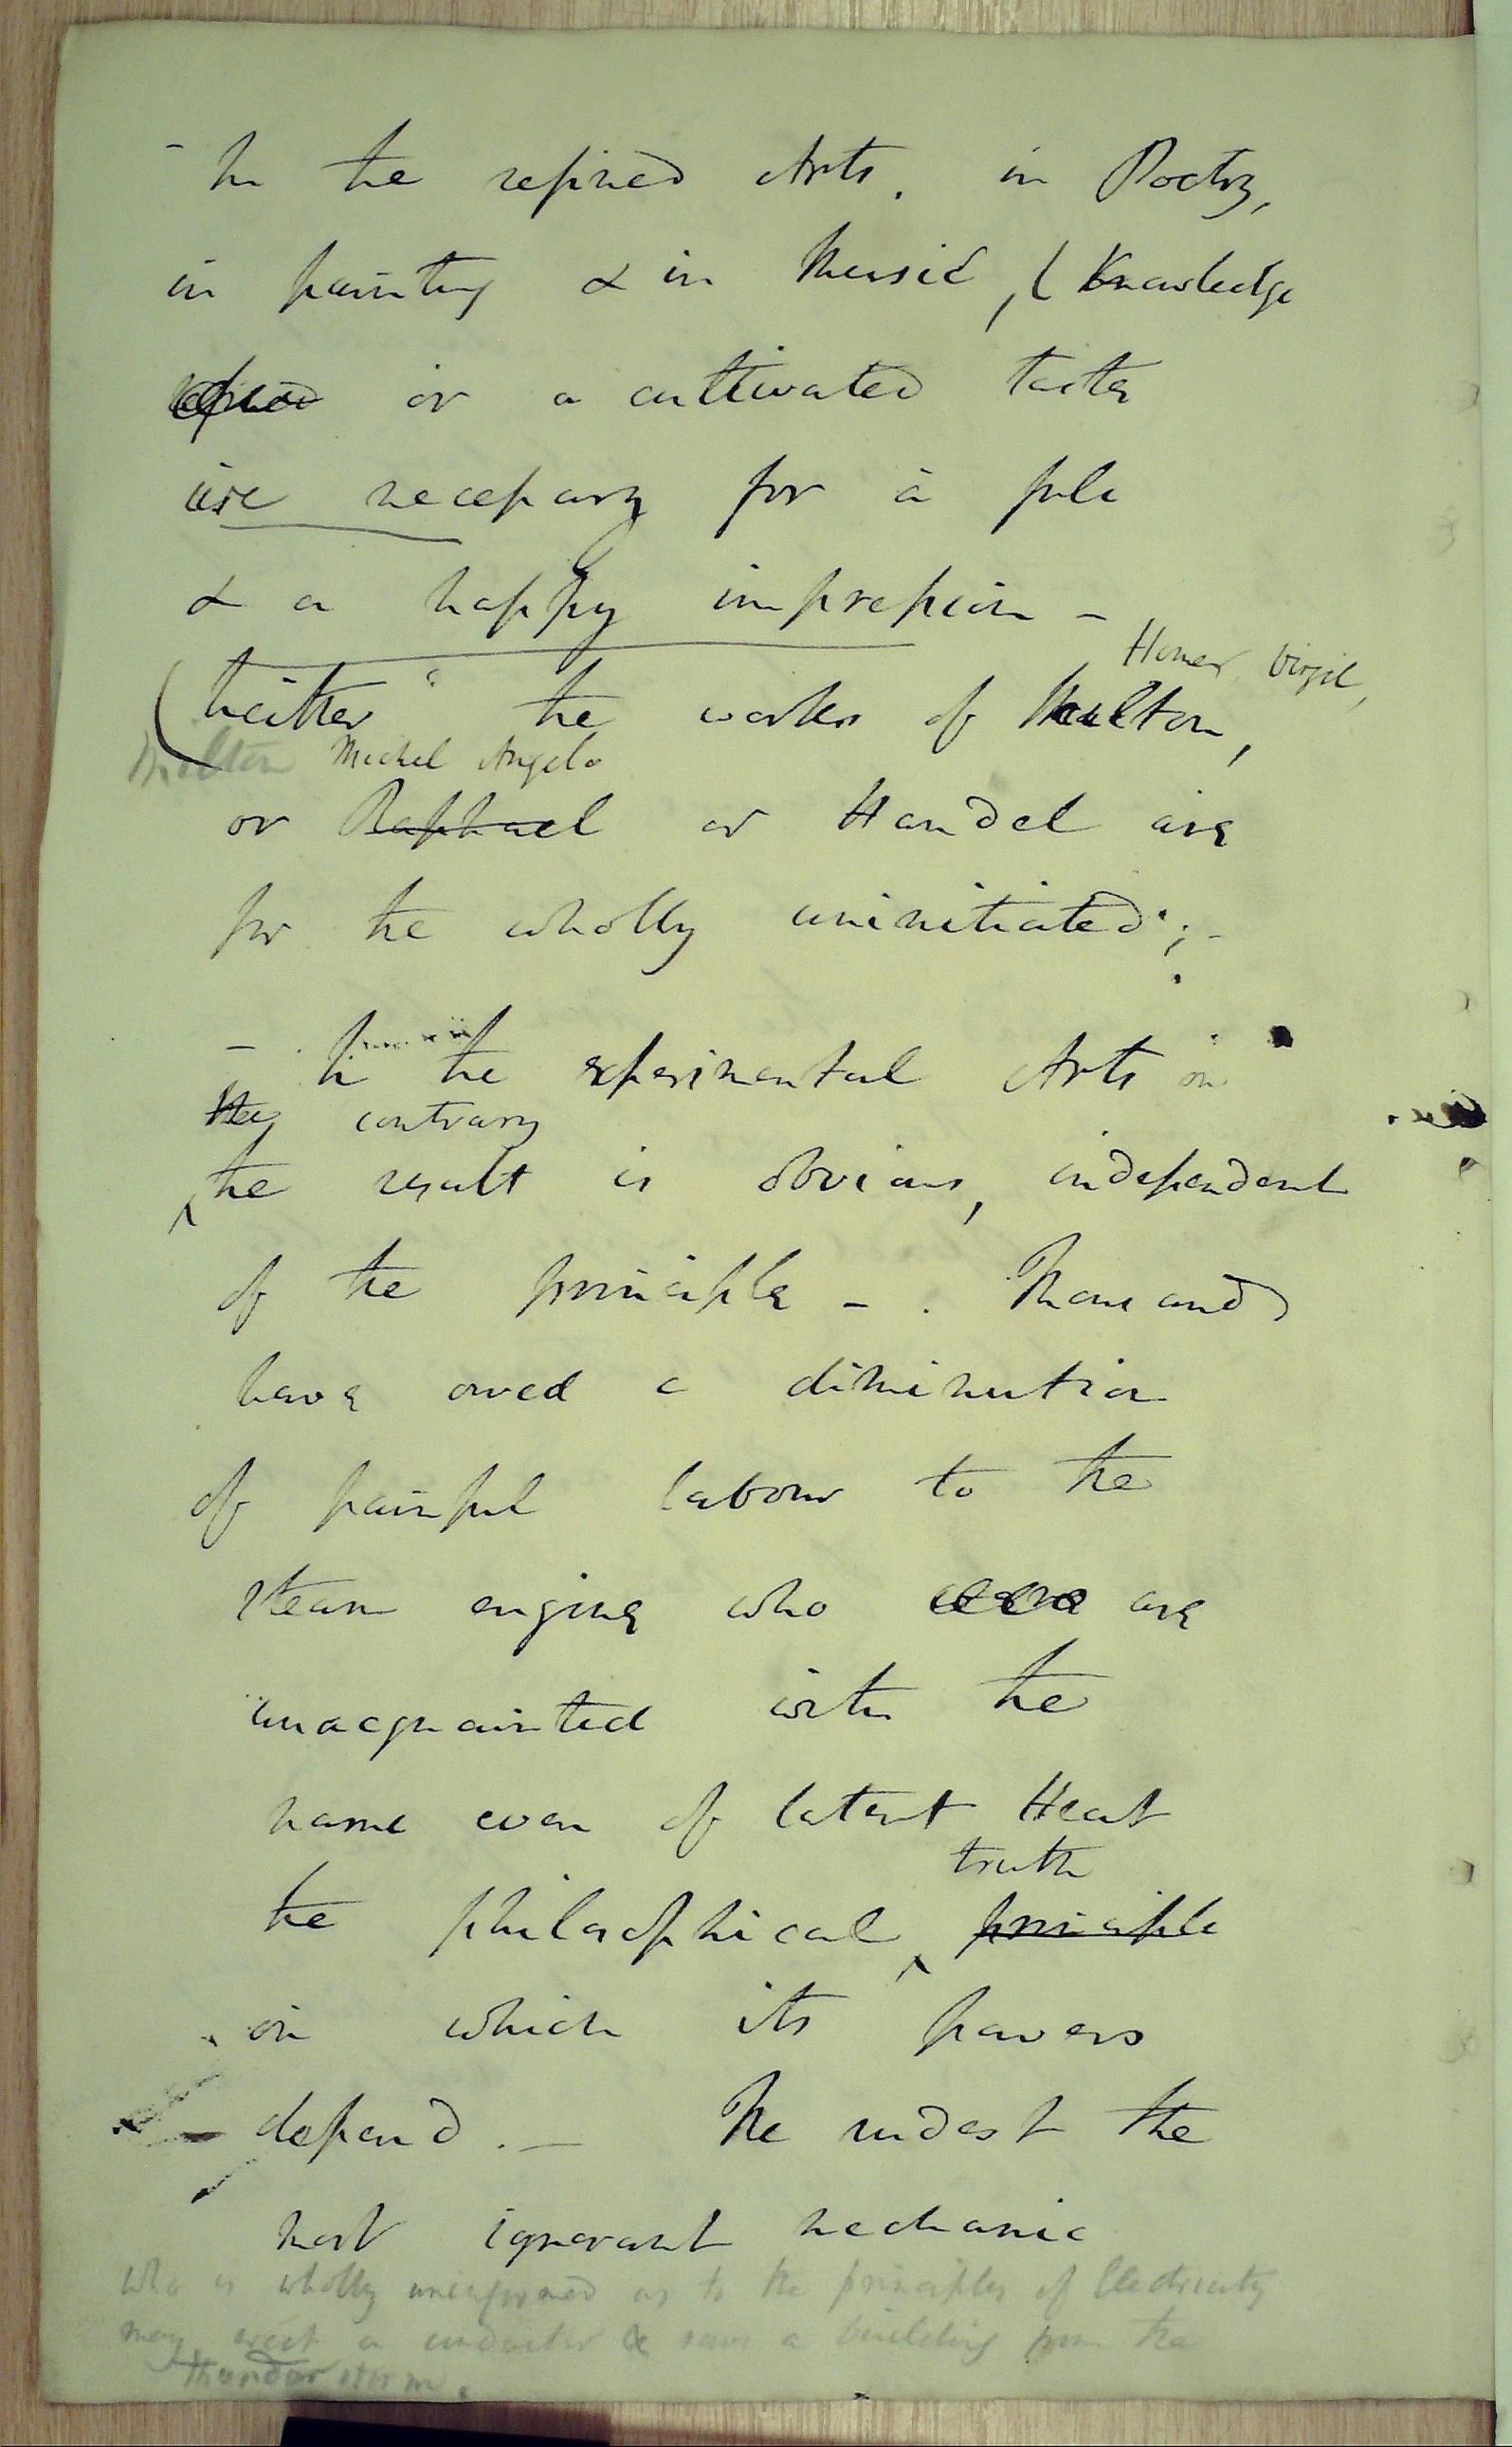 - In the refined Arts. in Poetry,
in painting & in Music, ( Knowledge
or a cultivated taste
is necessary for a full
& a happy impression -
Homer, Virgil,
(neither the works of Milton,
Milton Michel Angelo
or Raphael or Handel are
for the wholly uninitiated; -
- In the experimental Arts on
the contrary
the result is obvious, independent
of the principle - . Thousands
have owed a diminution
of painful labour to the
steam engine who were are
unacquainted with the
name even of latent Heat
truth
the philosophical principle
on which its powers
depend. - The rudest the
most ignorant mechanic
who is wholly uninformed as to the principles of Electricity
may erect a conductor & save a building from the
thunder storm.